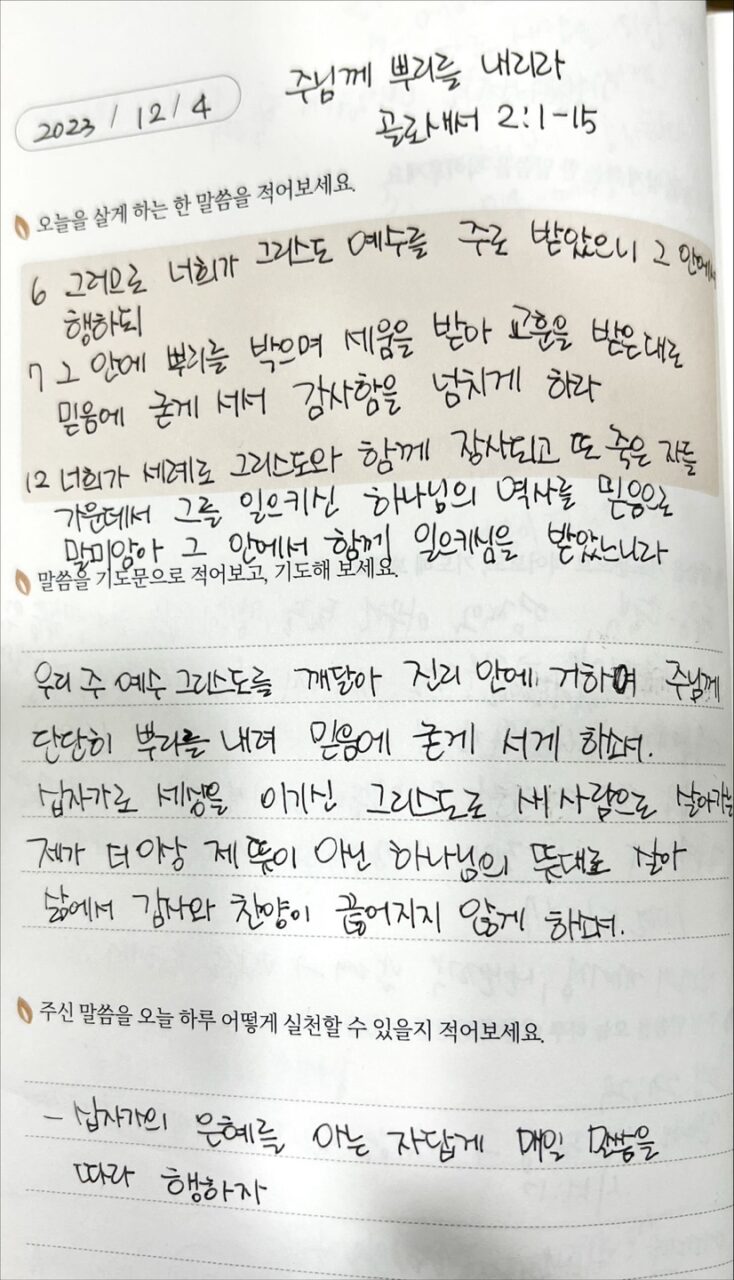 2023 / 12 / 4
주님께 뿌리를 내리라
골로새서 2:1-15
오늘을 살게 하는 한 말씀을 적어보세요.
6 그러므로 너희가 그리스도 예수를 주로 받았으니 그 안에서
행하되
7 그 안에 뿌리를 박으며 세움을 받아 교훈을 받은대로
믿음에 굳게 서서 감사함을 넘치게 하라
12 너희가 세례로 그리스도와 함께 장사되고 또 죽은 자들
가운데서 그를 일으키신 하나님의 역사를 믿음으로
말미암아 그 안에서 함께 일으키심을 받았느니라
말씀을 기도문으로 적어보고, 기도해 보세요.
우리 주 예수 그리스도를 깨달아 진리 안에 거하며 주님께
단단히 뿌리를 내려 믿음에 굳게 서게 하소서.
십자가로 세상을 이기신 그리스도로 새 사람으로 살아가는
제가 더 이상 제 뜻이 아닌 하나님의 뜻대로 살아
삶에서 감사와 찬양이 끊어지지 않게 하소서.
주신 말씀을 오늘 하루 어떻게 실천할 수 있을지 적어보세요.
- 십자가의 은혜를 아는 자답게 매일 말씀을
따라 행하자